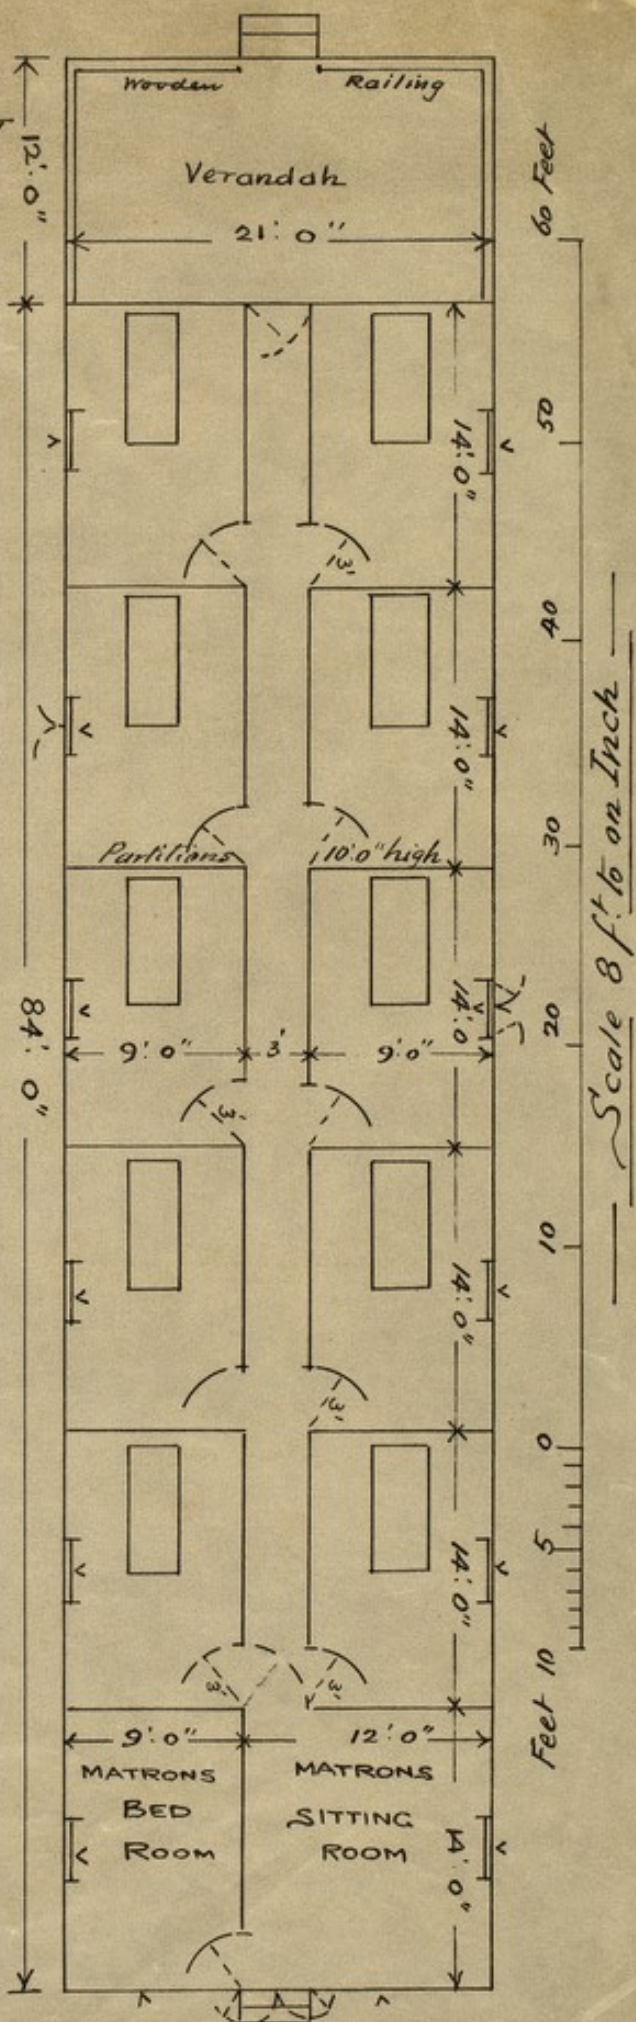 Wooden Railing
12'.0"
Verandah
21'.0"
14'.0"
3'
14'.0"
Partitions 10'.0" high
14'.0
9'.0" 3' 9'.0"
84'.0"
3'
14'.0"
3'
14'.0"
3' 3'
9'.0" 12'.0"
MATRONS
BED
ROOM
MATRONS
SITTING
ROOM
14'.0"
60 Feet
50
40
30
20
10
0
5
Feet 10
Scale 8 ft. to on Inch